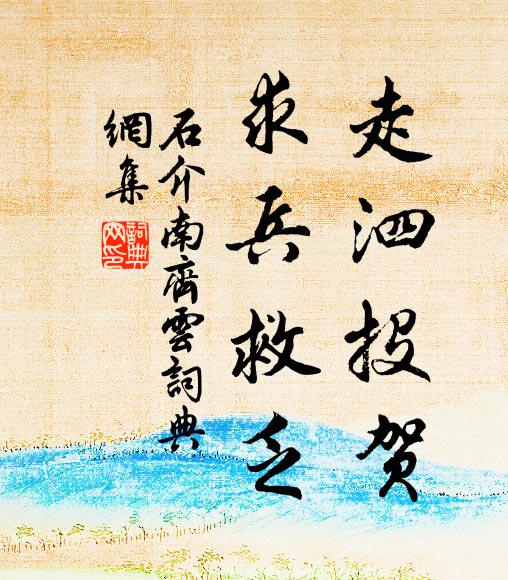 走泗投賀
求兵救乏
石介南齊雲詞典
網集
詞典
网印